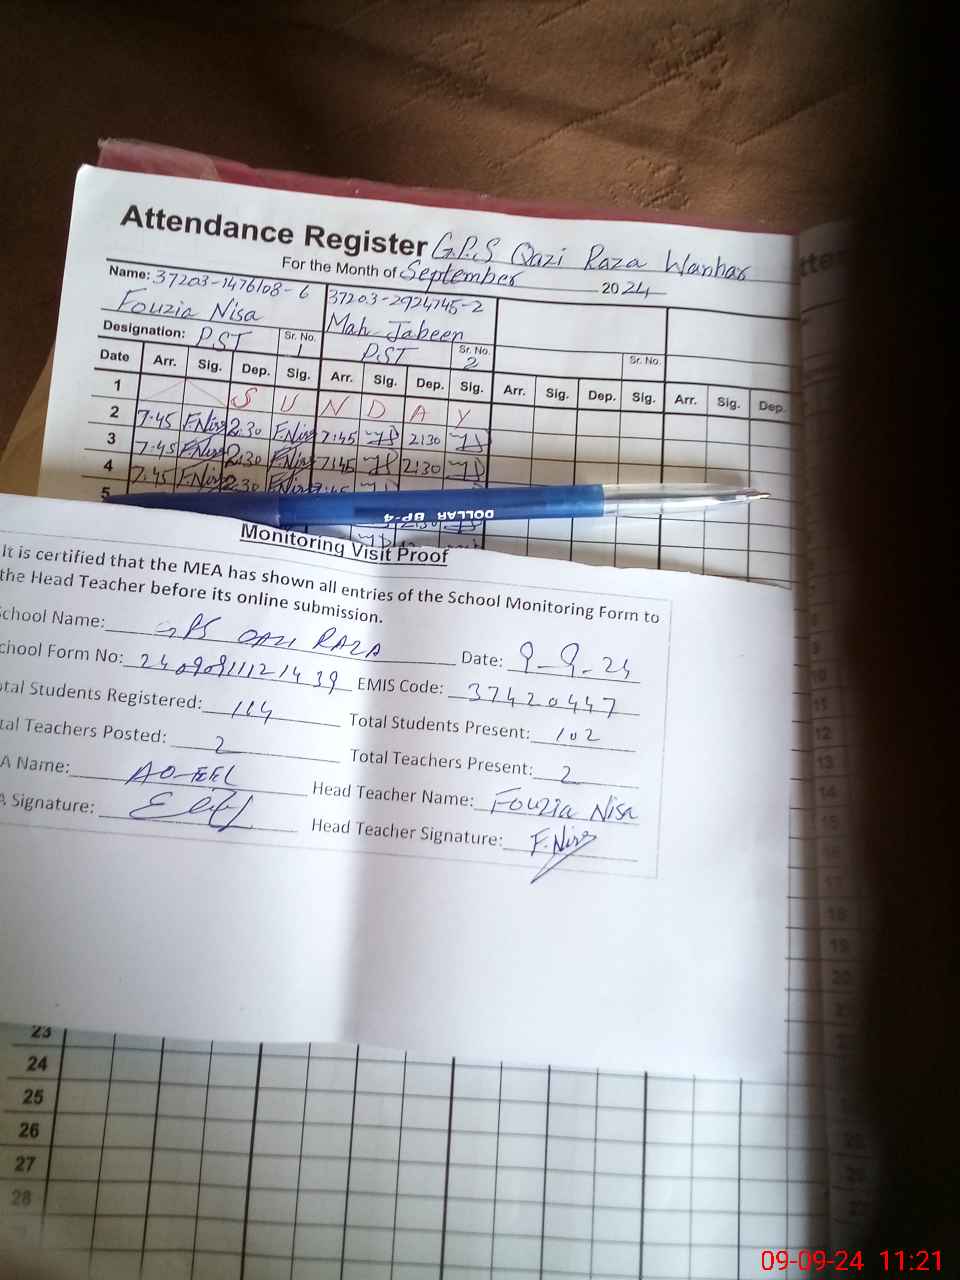 Attendance Register G.P.S Qazi Raza Wanhar
For the Month of September 2024
Name: 37203-1476108-6 37203-2924745-2
Fouzia Nisa Mah Jabeen
Designation: PST Sr. No. 1 PST Sr. No. 2 Sr. No.
Date Arr. Sig. Dep. Sig. Arr. Sig. Dep. Sig. Arr. Sig. Dep. Sig. Arr. Sig. Dep.
1 S U N D A Y
2 7.45 F.Nisa 2.30 F.Nisa 7:45 2:30
3 7.45 F.Nisa 2.30 F.Nisa 7:45 2:30
4 7.45 F.Nisa 2.30 F.Nisa
5
DOLLAR BP-4
Monitoring Visit Proof
It is certified that the MEA has shown all entries of the School Monitoring Form to
the Head Teacher before its online submission.
School Name: GPS QAZI RAZA Date: 9-9-24
chool Form No: EMIS Code: 37420447
tal Students Registered: 114 Total Students Present: 102
tal Teachers Posted: 2 Total Teachers Present: 2
A Name: Head Teacher Name: Fouzia Nisa
A Signature: Head Teacher Signature: F.Nisa
23
24
25
26
27
28
09-09-24 11:21